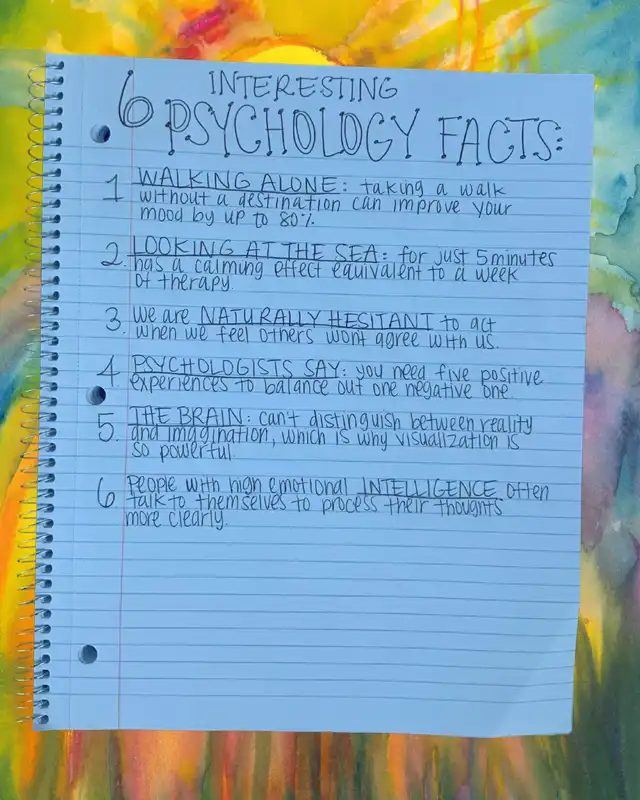 6 INTERESTING
PSYCHOLOGY FACTS:
1 WALKING ALONE: taking a walk
without a destination can improve your
mood by up to 80%.
2. LOOKING AT THE SEA: for just 5 minutes
has a calming effect equivalent to a week
of therapy.
3. We are NATURALLY HESITANT to act
when we feel others wont agree with us.
4 PSYCHOLOGISTS SAY: you need five positive
experiences to balance out one negative one.
5. THE BRAIN: can't distinguish between reality
and imagination, which is why visualization is
so powerful.
6 People with high emotional INTELLIGENCE often
talk to themselves to process their thoughts
more clearly.